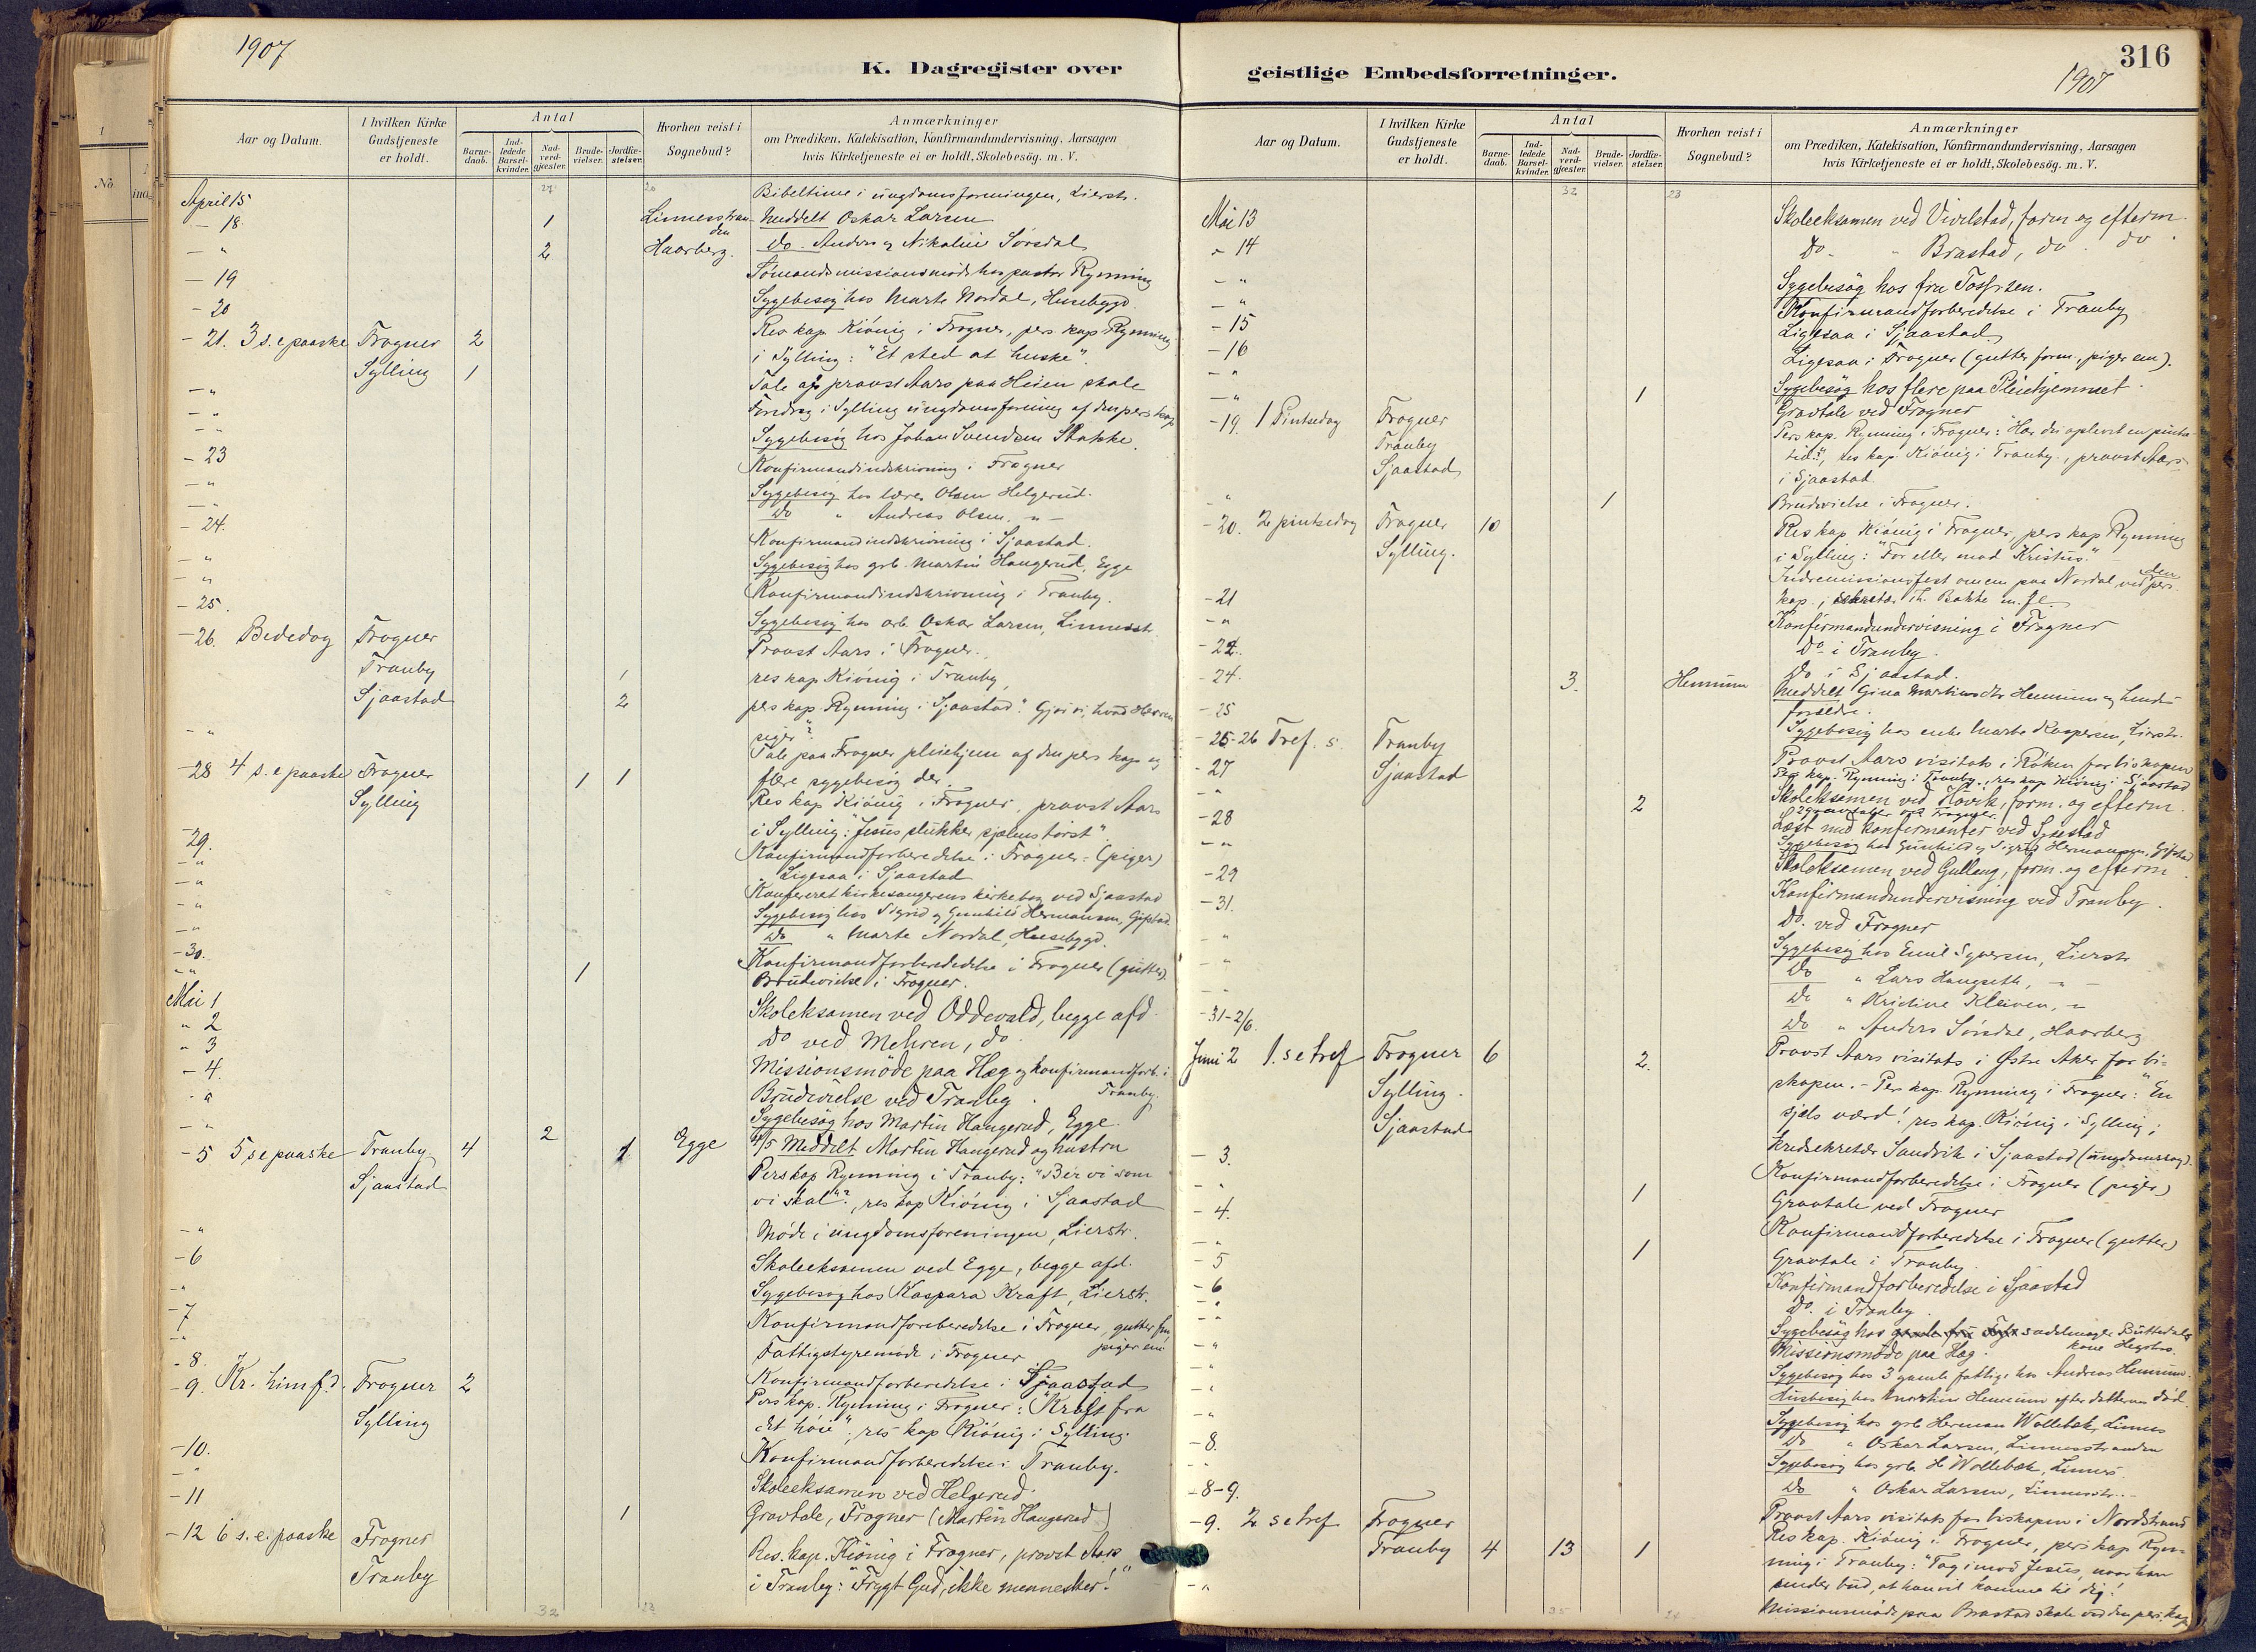 1907
K. Dagregister over
Aar og Datum.
I hvilken Kirke Gudstjeneste er holdt.
Antal
Barne-daab.
Ind-ledede Barsel-kvinder.
Nad-verd-gjæster.
Brude-vielser.
Jordfæ-stelser.
Hvorhen reist i Sognebud?
Anmærkninger
om Prædiken, Katekisation, Konfirmandundervisning, Aarsagen
hvis Kirketjeneste ei er holdt, Skolebesøg. m. V.
April 15 Bibeltime i ungdomsforeningen, Lierstr.
- 18. 1 Linnesstran-den Meddelt Oskar Larsen
- " 2 Haarberg. Do. Anders og Nikoline Sørsdal
- 19 Sømandsmissionsmøde hos pastor Rynning
- 20 Sygebesøg hos Marte Nordal, Husebygd.
- 21. 3 s. e paaske Frogner 2 Res kap Kiønig i Frogner, pers kap Rynning
Sylling 1 i Sylling: "Et sted at huske".
- " Tale af provst Aars paa Heien skole
- " Foredrag i Sylling ungdomsforening af den pers kap
- " Sygebesøg hos Johan Svendsen Stokke.
- 23 Konfirmandindskrivning i Frogner
- " Sygebesøg hos lærer Olsen Helgerud.
- " Do " Andreas Olsen - " -
- 24. Konfirmandindskrivning i Sjaastad.
- " Sygebesøg hos grb. Martin Haugerud, Egge
- " Konfirmandindskrivning i Tranby.
- 25. Sygebesøg hos arb. Oskar Larsen, Linnesstr.
- 26. Bededag Frogner Provst Aars i Frogner.
Tranby 1 res kap Kiønig i Tranby,
Sjaastad 2 pers kap Rynning i Sjaastad: "Gjør vi, hvad Herren
siger?"
- " Tale paa Frogner pleiehjem af den pers kap og
flere sygebesøg der.
- 28 4 s. e paaske Frogner 1 1 Res kap Kiønig i Frogner, provst Aars
Sylling i Sylling: "Jesus slukker sjælens tørst".
- 29. Konfirmandforberedelse i Frogner (piger)
- " Ligesaa i Sjaastad
- " Konfereret kirkesangerens kirkebog ved Sjaastad
- " Sygebesøg hos Sigrid og Gunhild Hermansen, Gifstad.
- " Do " Marte Nordal, Husebygd.
- 30. Konfirmandforberedelse i Frogner (gutter)
- " 1 Brudevielse i Frogner.
Mai 1 Skoleksamen ved Oddevald, begge afd.
" 2 Do ved Mehren, do
" 3 Missionsmøde paa Hæg og konfirmandforb. i
Tranby.
- 4. Brudevielse ved Tranby.
- " Sygebesøg hos Martin Haugerud, Egge.
- " 2 Egge 4/5 Meddelt Martin Haugerud og hustru
- 5 5 s e paaske Tranby 4 1 Pers kap Rynning i Tranby: "Ber vi som
Sjaastad vi skal"?, res kap Kiønig i Sjaastad
- " Møde i ungdomsforeningen, Lierstr.
- 6 Skoleeksamen ved Egge, begge afd.
- " Sygebesøg hos Kaspara Kraft, Lierstr.
- 7 Konfirmandforberedelse i Frogner, gutter fm,
piger em
- " Fattigstyremøde i Frogner
- 8. Konfirmandforberedelse i Sjaastad
- 9. Kr. himf. d. Frogner 2 Pers kap. Rynning i Frogner: "Kraft fra
Sylling det høie"; res kap Kiønig i Sylling.
- 10. Konfirmandforberedelse i Tranby.
- " Skoleeksamen ved Helgerud
- 11 1 Gravtale, Frogner (Martin Haugerud)
- 12 6 s. e. paaske Frogner Res. kap. Kiønig i Frogner, provst Aars
Tranby i Tranby: "Frygt Gud, ikke mennesker!"
32 23
geistlige Embedsforretninger.
316
1907
Aar og Datum.
I hvilken Kirke Gudstjeneste er holdt.
Antal
Barne-daab.
Ind-ledede Barsel-kvinder.
Nad-verd-gjæster.
Brude-vielser.
Jordfæ-stelser.
Hvorhen reist i Sognebud?
Anmærkninger
om Prædiken, Katekisation, Konfirmandundervisning, Aarsagen
hvis Kirketjeneste ei er holdt, Skolebesøg. m. V.
32 23
Mai 13 Skoleeksamen ved Vivelstad, form og efterm.
- 14 Do. " Brastad, do. do.
- " Sygebesøg hos fru
- " Konfirmandforberedelse i Tranby
- 15 Ligesaa i Sjaastad
- 16 Ligesaa i Frogner (gutter form., piger em).
- " Sygebesøg hos flere paa Pleiehjemmet.
- " 1 Gravtale ved Frogner
- 19. 1 Pintsedag Frogner Pers kap. Rynning i Frogner: Har du oplevet en pintse-
Tranby tid?", res kap. Kiønig i Tranby, provst Aars
Sjaastad i Sjaastad.
" 1 Brudevielse i Frogner.
- 20. 2 pintsedag Frogner 10 Res kap Kiønig i Frogner, pers kap Rynning
Sylling. i Sylling: "For eller mod Kristus".
Indremissionsfest om em paa Nordal, ved den pers.
kap., sekretær Th. Bakke m. fl.
- 21 Konfirmandundervisning i Frogner
- " Do i Tranby.
- 22. Do i Sjaastad.
- 24. 3. Hennum Meddelt Gina Martinsdtr Hennum og hendes
forældre.
- 25 Sygebesøg hos enke Marte Kaspersen, Lierstr.
- 25-26 Tref. s. Tranby Provst Aars visitats i Røken for biskopen
- 27 Sjaastad Pers kap. Rynning i Tranby, res kap Kiønig i Sjaastad
- " Skoleksamen ved Høvik, form. og efterm.
2 2 gravtaler ved Frogner.
- 28 Læst med konfirmanter ved Sjaastad
- " Sygebesøg hos Gunhild og Sigrid Hermansen, Gifstad
- 29 Skoleksamen ved Gullaug, form. og efterm.
- 31. Konfirmandundervisning ved Tranby.
Do. ved Frogner
- " Sygebesøg hos Emil Syversen, Lierstr
- " Do " Lars Haugseth, - " -
- " Do " Kristine Kleiven, - "
Do " Anders Sørsdal, Haarberg
- 31-2/6. Provst Aars visitats i Østre Aker for bi-
Juni 2 1. s e tref Frogner 6 2. skopen. - Pers kap. Rynning i Frogner: "En
Sylling. sjæls værd! res kap. Kiønig i Sylling;
Sjaastad kredsekretær Sandvik i Sjaastad (ungdomssag).
- 3. Konfirmandforberedelse i Frogner (piger)
- " 1 Gravtale ved Frogner
- 4. Konfirmandforberedelse i Frogner (gutter)
- " 1 Gravtale i Tranby.
- 5 Konfirmandforberedelse i Sjaastad
- 6 Do. i Tranby.
- " Sygebesøg hos sadelmager Buttedals
kone Hegstro.
- " Missionsmøde paa Hæg.
- " Sygebesøg hos 3 gamle fattige hos Andreas Hennum.
- " Husbesøg hos Martin Hennum efter datterens død.
- " Sygebesøg hos grb Herman Wollebæk, Linnes
- " Do " Oskar Larsen, Linnesstranden
- 8. Sygebesøg hos grb H Wollebæk, Linnes.
- " Do " Oskar Larsen, Linnesstr. -
- 8-9. Provst Aars visitats for biskopen i Nordstrand
- 9. 2 s e tref Frogner Res kap. Kiønig i Frogner, pers kap Ryn-
Tranby 4 13 1 ning i Tranby: "Tag imod Jesus, naar han
sender bud, at han vil komme til dig!
- " Missionsmøde paa Brastad skole ved den pers. kap